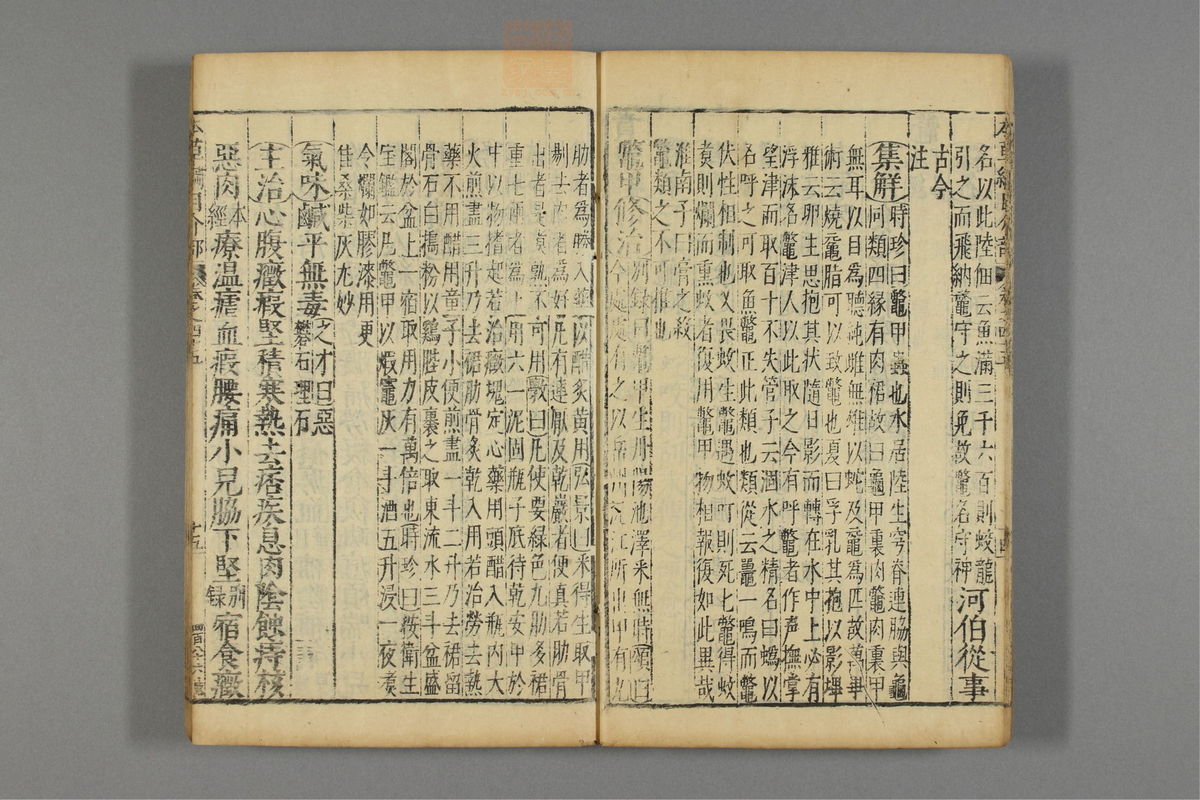 名以此陸佃云魚滿三千六百則蛟龍
引之而飛納鼈守之則免故鼈名守神河伯從事
古今
注
集解時珍曰鼈甲蟲也水居陸生穹脊連脇與龜
同類四緣有肉裙故曰龜甲裏肉鼈肉裏甲
無耳以目爲聽純雌無雄以蛇及黿爲匹故萬畢
術云燒黿脂可以致鼈也夏曰孚乳其抱以影埤
雅云卵生思抱其狀隨日影而轉在水中上必有
浮沫名鼈津人以此取之今有呼鼈者作声撫掌
望津而取百十不失管子云涸水之精名曰蟡以
名呼之可取魚鼈正此類也類從云鼉一鳴而鼈
伏性相制也又畏蚊生鼈遇蚊叮則死七鼈得蚊
煑則爛而熏蚊者復用鼈甲物相報復如此異哉
淮南子曰膏之殺
鼈類之不可推也
鼈甲修治别録曰鼈甲生丹陽池澤采無時頌曰
今處處有之以岳州沅江所出甲有九
肋者爲勝入藥以醋炙黄用弘景曰采得生取甲
剔去肉者爲好凡有連厭及乾巖者便真若肋骨
出者是煑熟不可用斆曰凡使要緑色九肋多裙
重七兩者爲上用六一泥固瓶子底待乾安甲於
中以物搘起若治癥塊定心藥用頭醋入瓶内大
火煎盡三升乃去裙肋骨炙乾入用若治勞去熱
藥不用醋用童子小便煎盡一斗二升乃去裙留
骨石臼擣粉以鷄䏶皮裹之取東流水三斗盆盛
閣於盆上一宿取用力有萬倍也時珍曰按衛生
宝鑑云凡鼈甲以煅竈灰一斗酒五升浸一夜煑
令爛如膠漆用更
佳桑柴灰尤妙
氣味鹹平無毒之才曰惡
礬石理石
主治心腹癥瘕堅積寒熱去痞疾息肉陰蝕痔核
惡肉本經療温瘧血瘕腰痛小兒脇下堅别録宿食癥